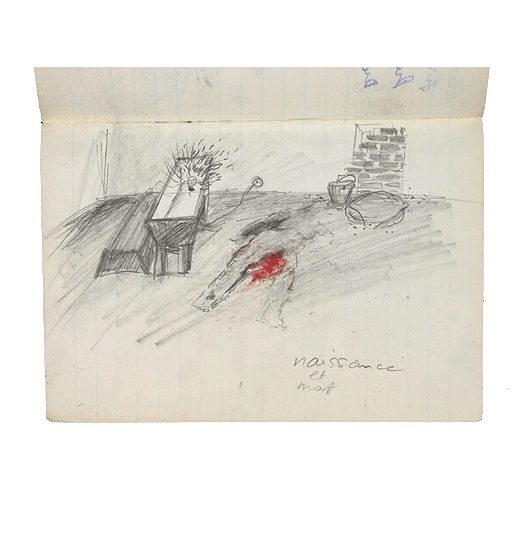 naissance
et
mort